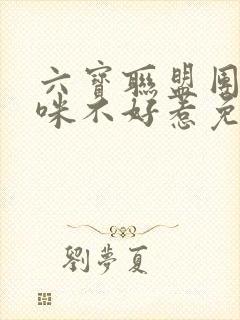 六寶聯盟團
咪不好惹免
劉夢夏